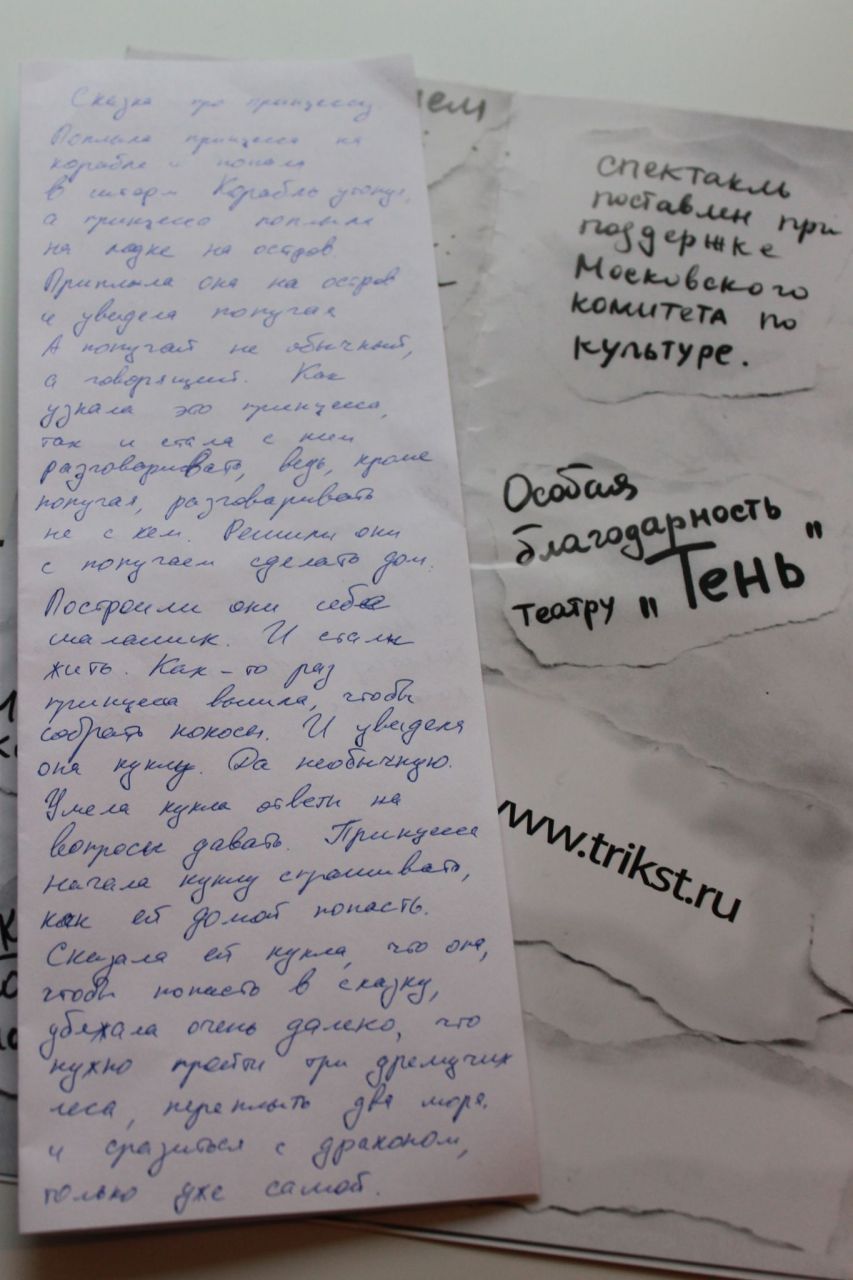 Сказка про принцессу.
Поплыла принцесса на
корабле и попала
в шторм Корабль утонул,
а принцесса поплыла
на лодке на остров
Приплыла она на остров
и увидела попугая
А попугай не обычный,
а говорящий. Как
узнала это принцесса,
так и стала с ним
разговаривать, ведь, кроме
попугая, разговаривать
не с кем. Решили они
с попугаем сделать дом.
Построили они себе
шалашик. И стали
жить. Как-то раз
принцесса вышла, чтобы
собрать кокосы. И увидела
она куклу. Да необычную.
Умела кукла ответы на
вопросы давать. Принцесса
начала куклу спрашивать,
как ей домой попасть.
Сказала ей кукла, что она,
чтобы попасть в сказку,
убежала очень далеко, что
нужно пройти три дремучих
леса, переплыть два моря
и сразиться с драконом,
только уже самой.
спектакль
поставлен при
поддержке
Московского
комитета по
культуре.
Особая
благодарность
театру "Тень"
www.trikst.ru